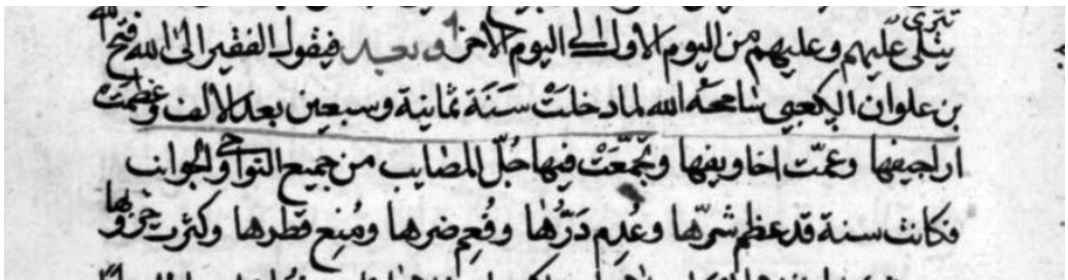 تترى
يتلى عليهم وعليهم من اليوم الاول الى اليوم الاخر وبعد فيقول الفقير الى الله فتح الله
بن علوان الكعبي سامحه الله لما دخلت سَنَة ثمانية وسبعين بعد الالف وعظمت
اراجيفها وعمّت اخاويفها وتجمّعَتْ فيها جُلّ المصايب من جميع النواحي والجوانب
فكانت سنة قد عظم شرّها وعُدِم دَرُّها وقُعِم ضرها ومُنِع قطرها وكثرت